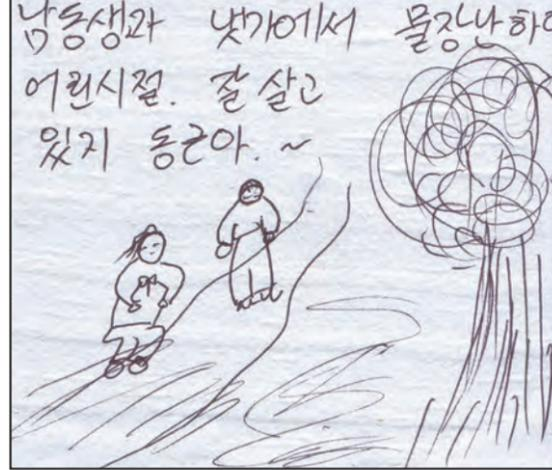 남동생과 냇가에서 물장난하
어린시절. 잘 살고
있지 동근아. ~